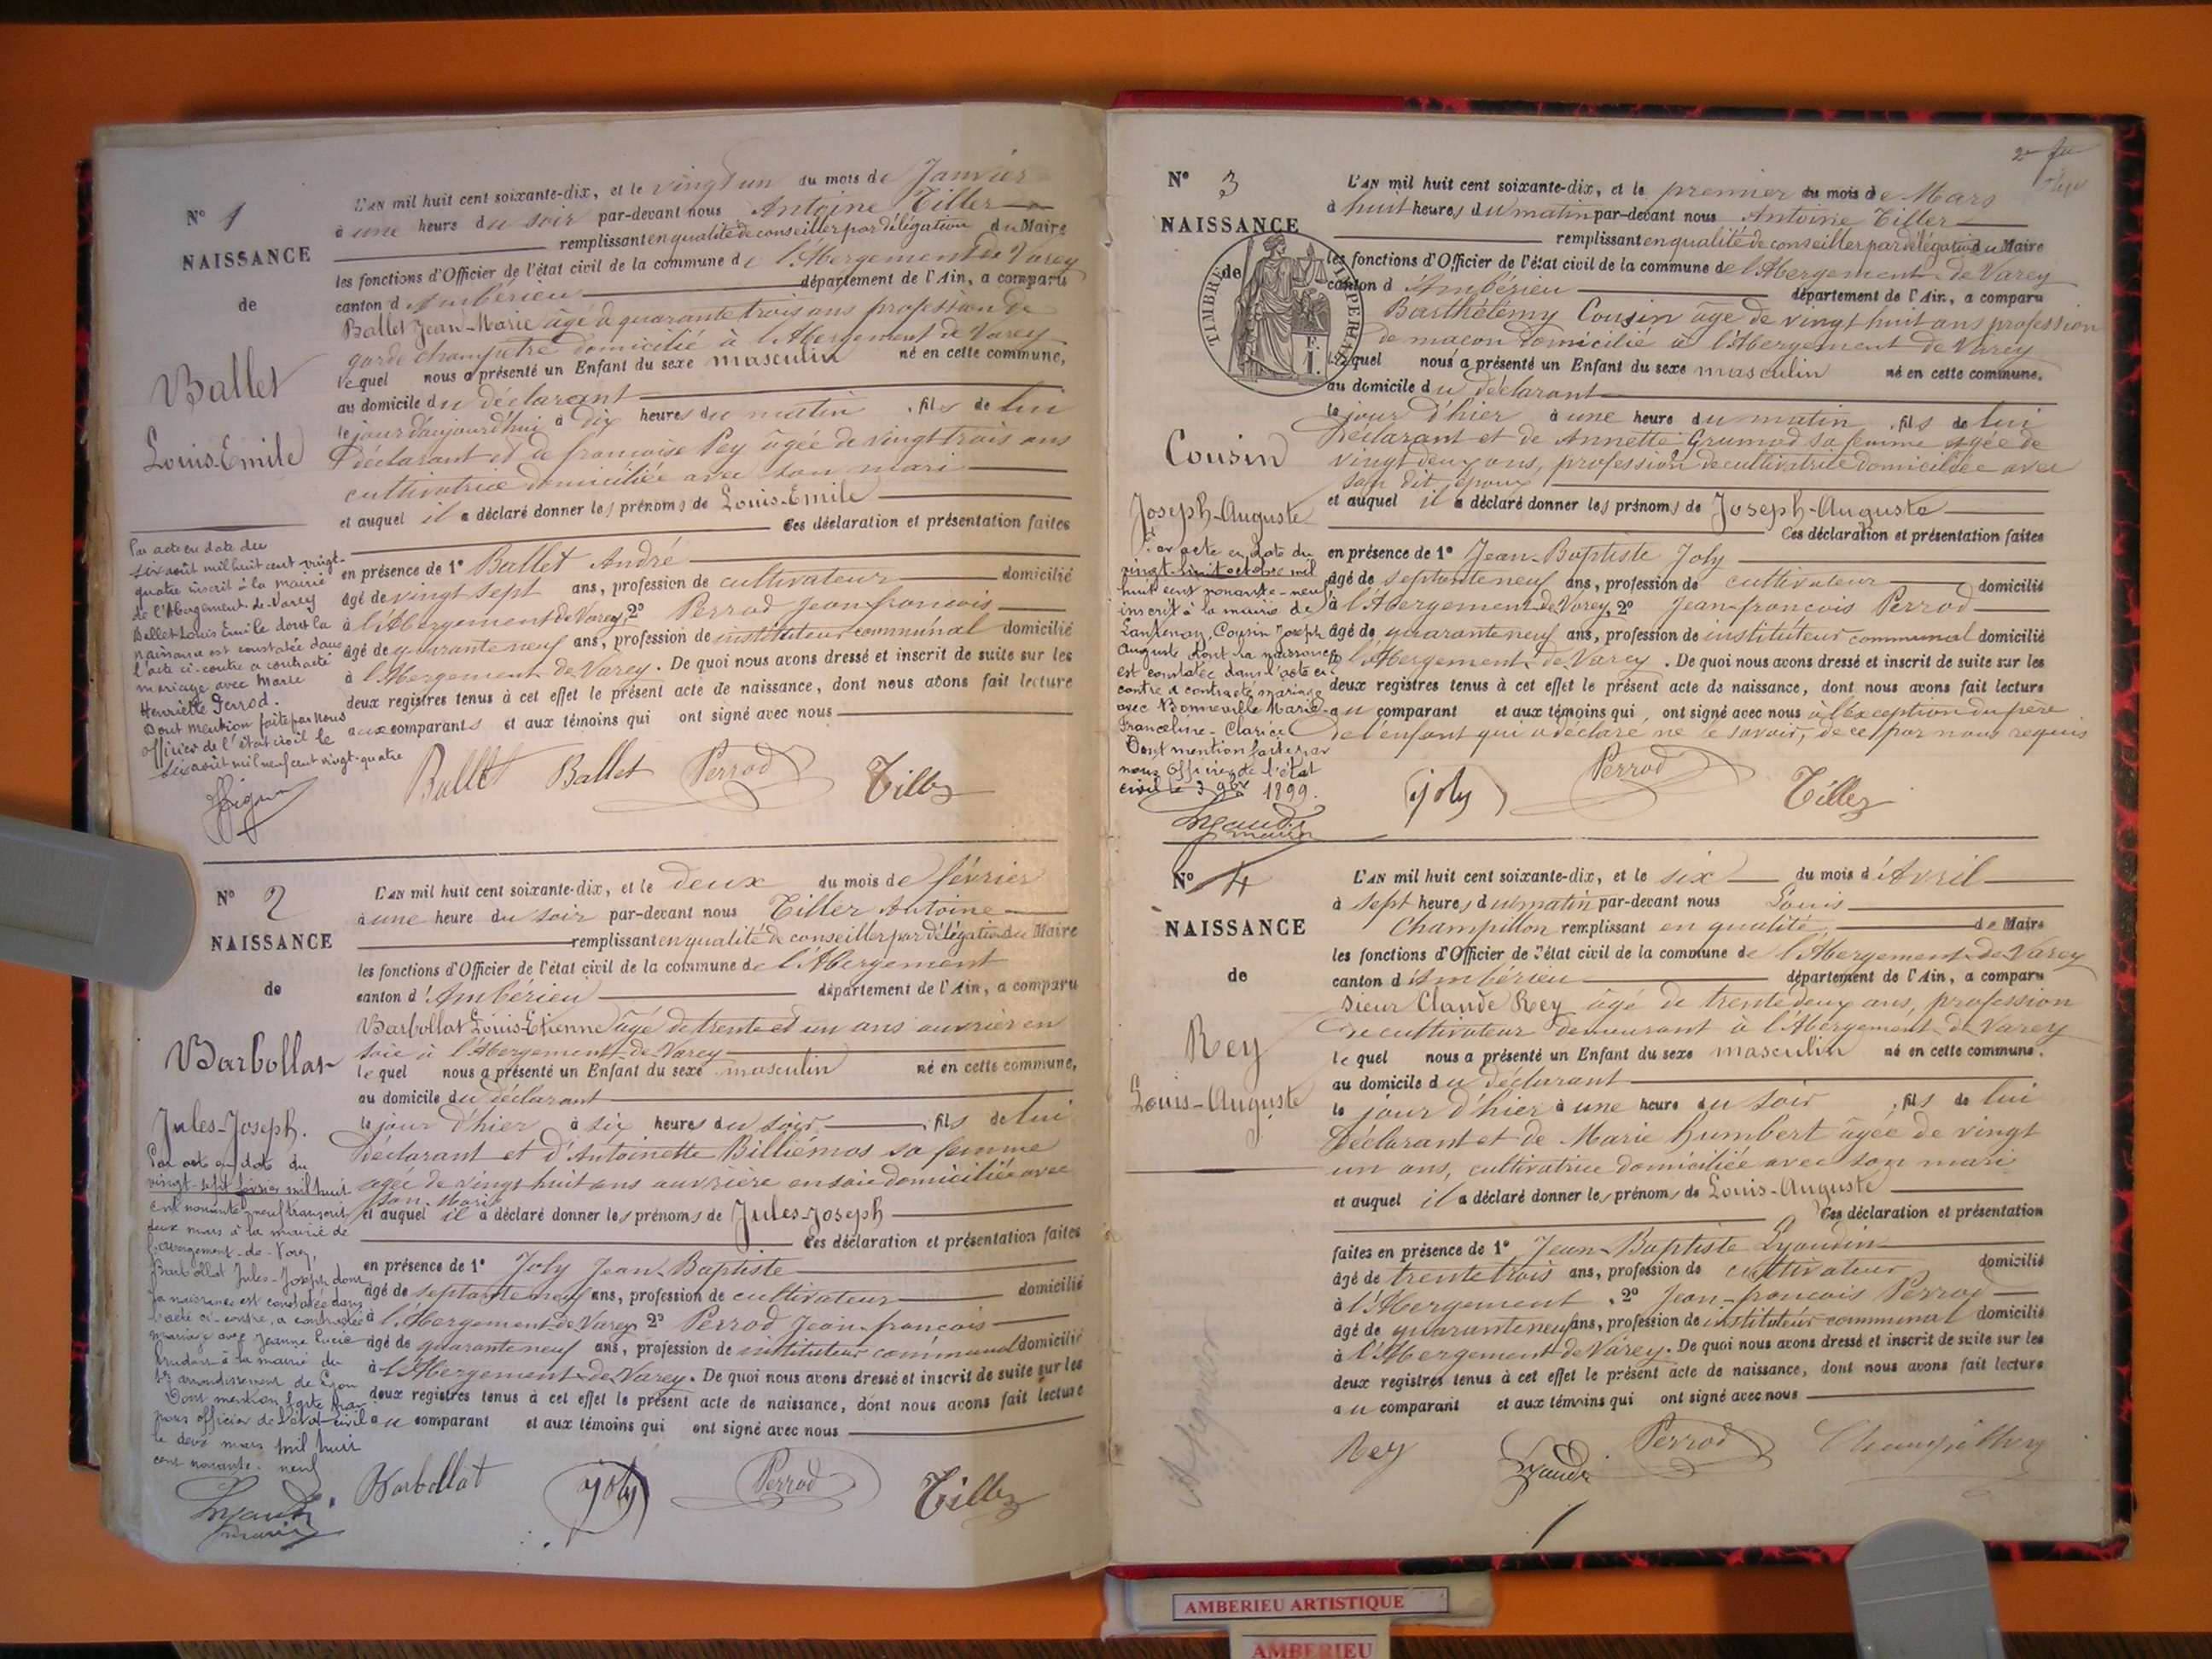 N° 1
NAISSANCE
de
Ballet
Louis-Emile
L'AN mil huit cent soixante-dix, et le vingt un du mois de Janvier
à une heure du soir par-devant nous Antoine Tiller
remplissant en qualité de conseiller par délégation du Maire
les fonctions d'Officier de l'état civil de la commune de l'Abergement de Varey
canton d'Ambérieu département de l'Ain, a comparu
Ballet Jean-Marie âgé de quarante trois ans profession de
garde champêtre domicilié à l'Abergement de Varey
lequel nous a présenté un Enfant du sexe masculin né en cette commune,
au domicile du déclarant
le jour d'aujourd'hui à dix heures du matin, fils de lui
déclarant et de francoise Pey âgée de vingt trois ans
cultivatrice domiciliée avec son mari
et auquel il a déclaré donner les prénoms de Louis-Emile
Ces déclaration et présentation faites
en présence de 1° Ballet André
âgé de vingt sept ans, profession de cultivateur domicilié
à l'Abergement de Varey, 2° Perrod Jean-francois
âgé de quarante neuf ans, profession de instituteur communal domicilié
à l'Abergement de Varey. De quoi nous avons dressé et inscrit de suite sur les
deux registres tenus à cet effet le présent acte de naissance, dont nous avons fait lecture
aux comparants et aux témoins qui ont signé avec nous
Par acte en date du
six août mil huit cent vingt-
quatre inscrit à la mairie
de l'Abergement-de-Varey
Ballet Louis Emile dont la
naissance est constatée dans
l'acte ci-contre a contracté
mariage avec Marie
Henriette Perrod.
Dont mention faite par nous
officier de l'état civil le
six août mil neuf cent vingt-quatre
Ballet Ballet Perrod Tiller
N° 2
NAISSANCE
de
Barbollat
Jules-Joseph.
L'AN mil huit cent soixante-dix, et le deux du mois de février
à une heure du soir par-devant nous Tiller Antoine
remplissant en qualité de conseiller par délégation du Maire
les fonctions d'Officier de l'état civil de la commune de l'Abergement
canton d'Ambérieu département de l'Ain, a comparu
Barbollat Louis-Etienne âgé de trente et un ans ouvrier en
soie à l'Abergement-de-Varey
lequel nous a présenté un Enfant du sexe masculin né en cette commune,
au domicile du déclarant
le jour d'hier à six heures du soir, fils de lui
déclarant et d'Antoinette Billiémos sa femme
agée de vingt huit ans ouvrière en soie domiciliée avec
son Marie
et auquel il a déclaré donner les prénoms de Jules-Joseph
Ces déclaration et présentation faites
en présence de 1° Joly Jean-Baptiste
âgé de septante neuf ans, profession de cultivateur domicilié
à l'Abergement de Varey 2° Perrod Jean-francois
âgé de quarante neuf ans, profession de instituteur communal domicilié
à l'Abergement-de-Varey. De quoi nous avons dressé et inscrit de suite sur les
deux registres tenus à cet effet le présent acte de naissance, dont nous avons fait lecture
au comparant et aux témoins qui ont signé avec nous
Par acte en date du
vingt-sept février mil huit
cent nonante neuf transcrit
deux mars à la mairie de
l'Abergement-de-Varey,
Barbollat Jules-Joseph dont
la naissance est constatée dans
l'acte ci-contre, a contracté
mariage avec Jeanne Lucie
à la mairie du
arrondissement de Lyon
Dont mention faite par
nous officier de l'état civil
le deux mars mil huit
cent nonante-neuf
Barbollat Joly Perrod Tiller
N° 3
NAISSANCE
de
TIMBRE IMPERIAL
1 F.
Cousin
Joseph-Auguste
L'AN mil huit cent soixante-dix, et le premier du mois de Mars
à huit heures du matin par-devant nous Antoine Tiller
remplissant en qualité de conseiller par délégation du Maire
les fonctions d'Officier de l'état civil de la commune de l'Abergement-de Varey
canton d'Ambérieu département de l'Ain, a comparu
Barthélemy Cousin âgé de vingt huit ans profession
de maçon domicilié à l'Abergement de Varey
lequel nous a présenté un Enfant du sexe masculin né en cette commune,
au domicile du déclarant
le jour d'hier à une heure du matin, fils de lui
déclarant et de Annette Grumod sa femme agée de
vingt deux ans, profession de cultivatrice domiciliée avec
son dit époux
et auquel il a déclaré donner les prénoms de Joseph-Auguste
Ces déclaration et présentation faites
en présence de 1° Jean-Baptiste Joly
âgé de septante neuf ans, profession de cultivateur domicilié
à l'Abergement de Varey, 2° Jean-francois Perrod
âgé de quarante neuf ans, profession de instituteur communal domicilié
à l'Abergement-de Varey. De quoi nous avons dressé et inscrit de suite sur les
deux registres tenus à cet effet le présent acte de naissance, dont nous avons fait lecture
au comparant et aux témoins qui ont signé avec nous à l'exception du père
de l'enfant qui a déclaré ne le savoir, de ce par nous requis
Par acte en date du
vingt-huit octobre mil
huit cent nonante-neuf
inscrit à la mairie de
Lantenay, Cousin Joseph
Auguste dont la naissance
est constatée dans l'acte ci-
contre a contracté mariage
avec Bonneville Marie-
Franceline-Clarisse
Dont mention faite par
nous Officier de l'état
civil le 3 9bre 1899.
Joly Perrod Tiller
N° 4
NAISSANCE
de
Rey
Louis-Auguste
L'AN mil huit cent soixante-dix, et le six du mois d'Avril
à sept heures du matin par-devant nous Louis
Champillon remplissant en qualité de Maire
les fonctions d'Officier de l'état civil de la commune de l'Abergement-de-Varey
canton d'Ambérieu département de l'Ain, a comparu
sieur Claude Rey âgé de trente deux ans, profession
de cultivateur demeurant à l'Abergement-de Varey
lequel nous a présenté un Enfant du sexe masculin né en cette commune,
au domicile du déclarant
le jour d'hier à une heure du soir, fils de lui
déclarant et de Marie humbert âgée de vingt
un ans, cultivatrice domiciliée avec son mari
et auquel il a déclaré donner les prénoms de Louis-Auguste
Ces déclaration et présentation
faites en présence de 1° Jean-Baptiste Lyaudin
âgé de trente trois ans, profession de cultivateur domicilié
à l'Abergement, 2° Jean-francois Perrod
âgé de quarante neuf ans, profession de instituteur communal domicilié
à l'Abergement-de Varey. De quoi nous avons dressé et inscrit de suite sur les
deux registres tenus à cet effet le présent acte de naissance, dont nous avons fait lecture
au comparant et aux témoins qui ont signé avec nous
Rey Lyaudin Perrod Champillon
AMBERIEU ARTISTIQUE
AMBERIEU